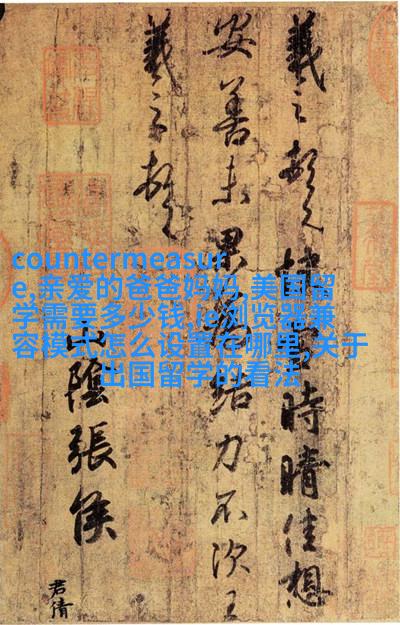 羲之頓首快雪時晴佳想
安善未果為結力不次王
羲之頓首
山陰張侯
君倩
countermeasur
e,亲爱的爸爸妈妈,美国留
学需要多少钱,ie浏览器兼
容模式怎么设置在哪里,关于
出国留学的看法